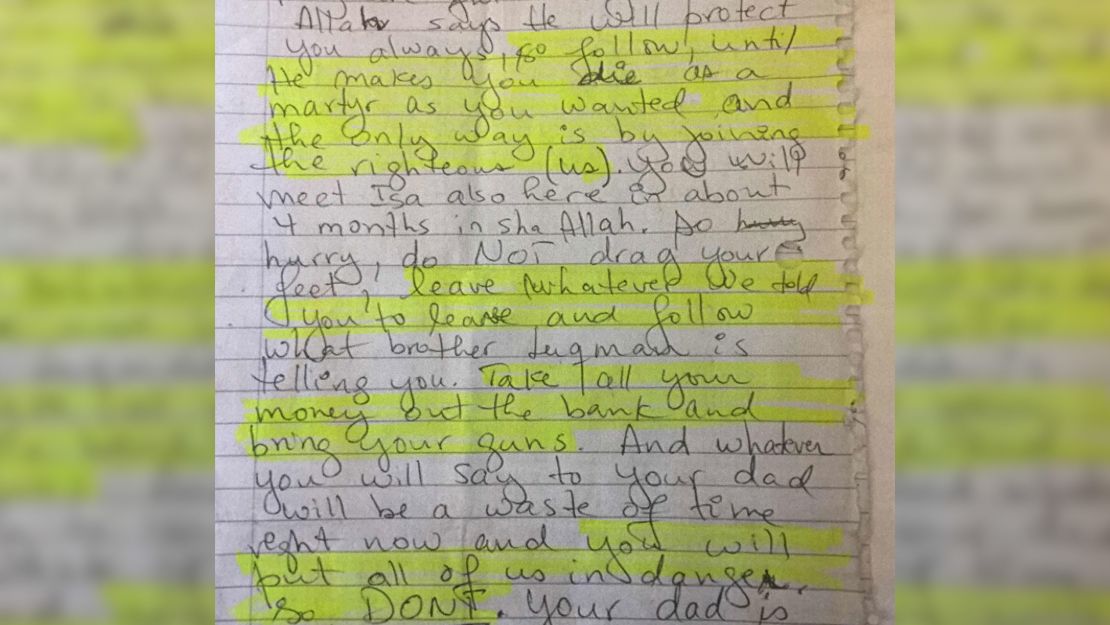 Allah says He will protect
you always, so follow until
He makes you die as a
martyr as you wanted and
the only way is by joining
the righteous (us). You will
meet Isa also here in about
4 months in sha Allah. So hurry
hurry, do NOT drag your
feet, leave whatever We told
you to leave and follow
what brother Luqman is
telling you. Take all your
money out the bank and
bring your guns. And whatever
you will say to your dad
will be a waste of time
right now and you will
put all of us in danger.
So DON'T. Your dad is